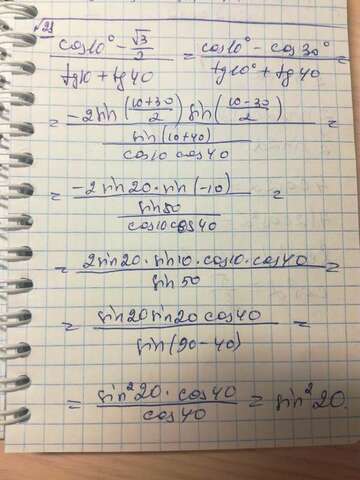 №23
(cos10° - √3/2)/(tg10 + tg40) = (cos10° - cos30°)/(tg10° + tg40) =
= (-2sin((10+30)/2)sin((10-30)/2))/(sin(10+40)/(cos10 cos40)) =
= (-2sin20·sin(-10))/(sin50/(cos10cos40)) =
= (2sin20·sin10·cos10·cos40)/(sin50) =
= (sin20sin20cos40)/(sin(90-40)) =
= (sin²20·cos40)/(cos40) = sin²20.